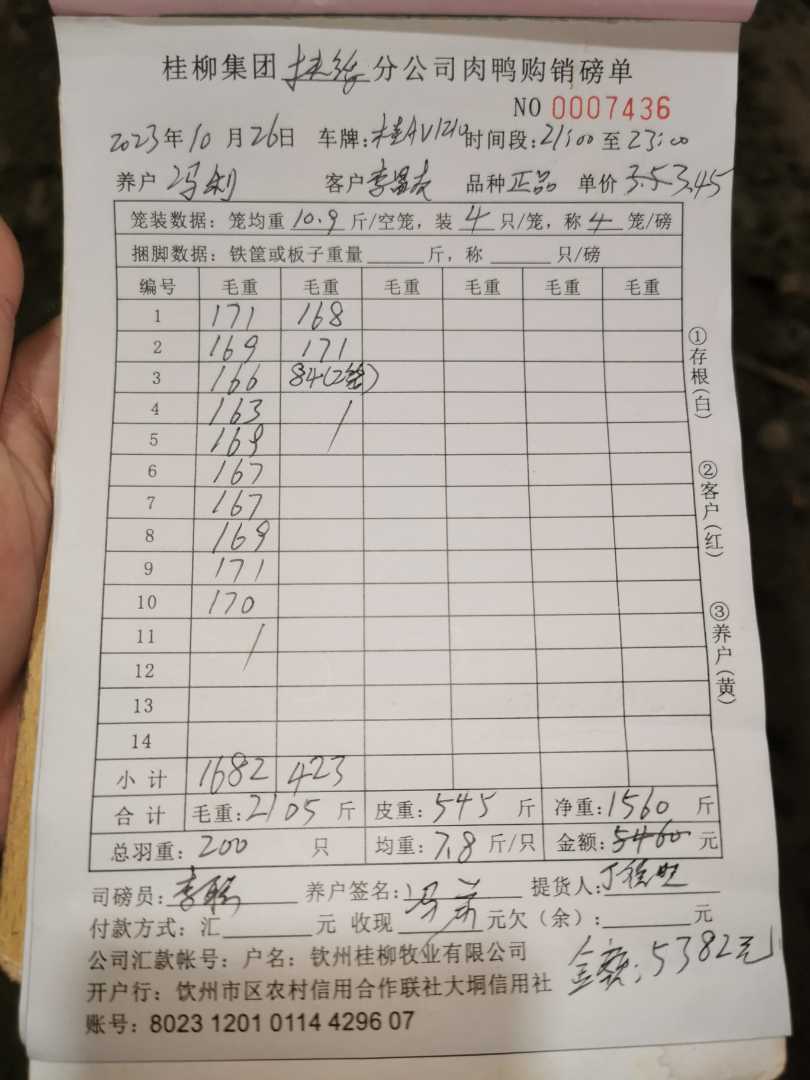 桂柳集团 分公司肉鸭购销磅单
NO 0007436
2023年10月26日 车牌:桂AV1210 时间段:21:00至23:00
养户 冯利 客户 李昌友 品种 正品 单价 3.5 3.45
笼装数据：笼均重 10.9 斤/空笼，装 4 只/笼，称 4 笼/磅
捆脚数据：铁筐或板子重量______斤，称______只/磅
编号 毛重 毛重 毛重 毛重 毛重 毛重
1 171 168
2 169 171
3 166 84(2笼)
4 163 /
5 169
6 167
7 167
8 169
9 171
10 170
11 /
12
13
14
小计 1682 423
合计 毛重:2105斤 皮重:545斤 净重:1560斤
总羽重:200只 均重:7.8斤/只 金额:5460元
司磅员: 养户签名: 提货人:
付款方式：汇______元 收现______元欠（余）:______元
公司汇款帐号：户名：钦州桂柳牧业有限公司
金额:5382元
开户行：钦州市区农村信用合作联社大垌信用社
账号：8023 1201 0114 4296 07
①存根(白)
②客户(红)
③养户(黄)